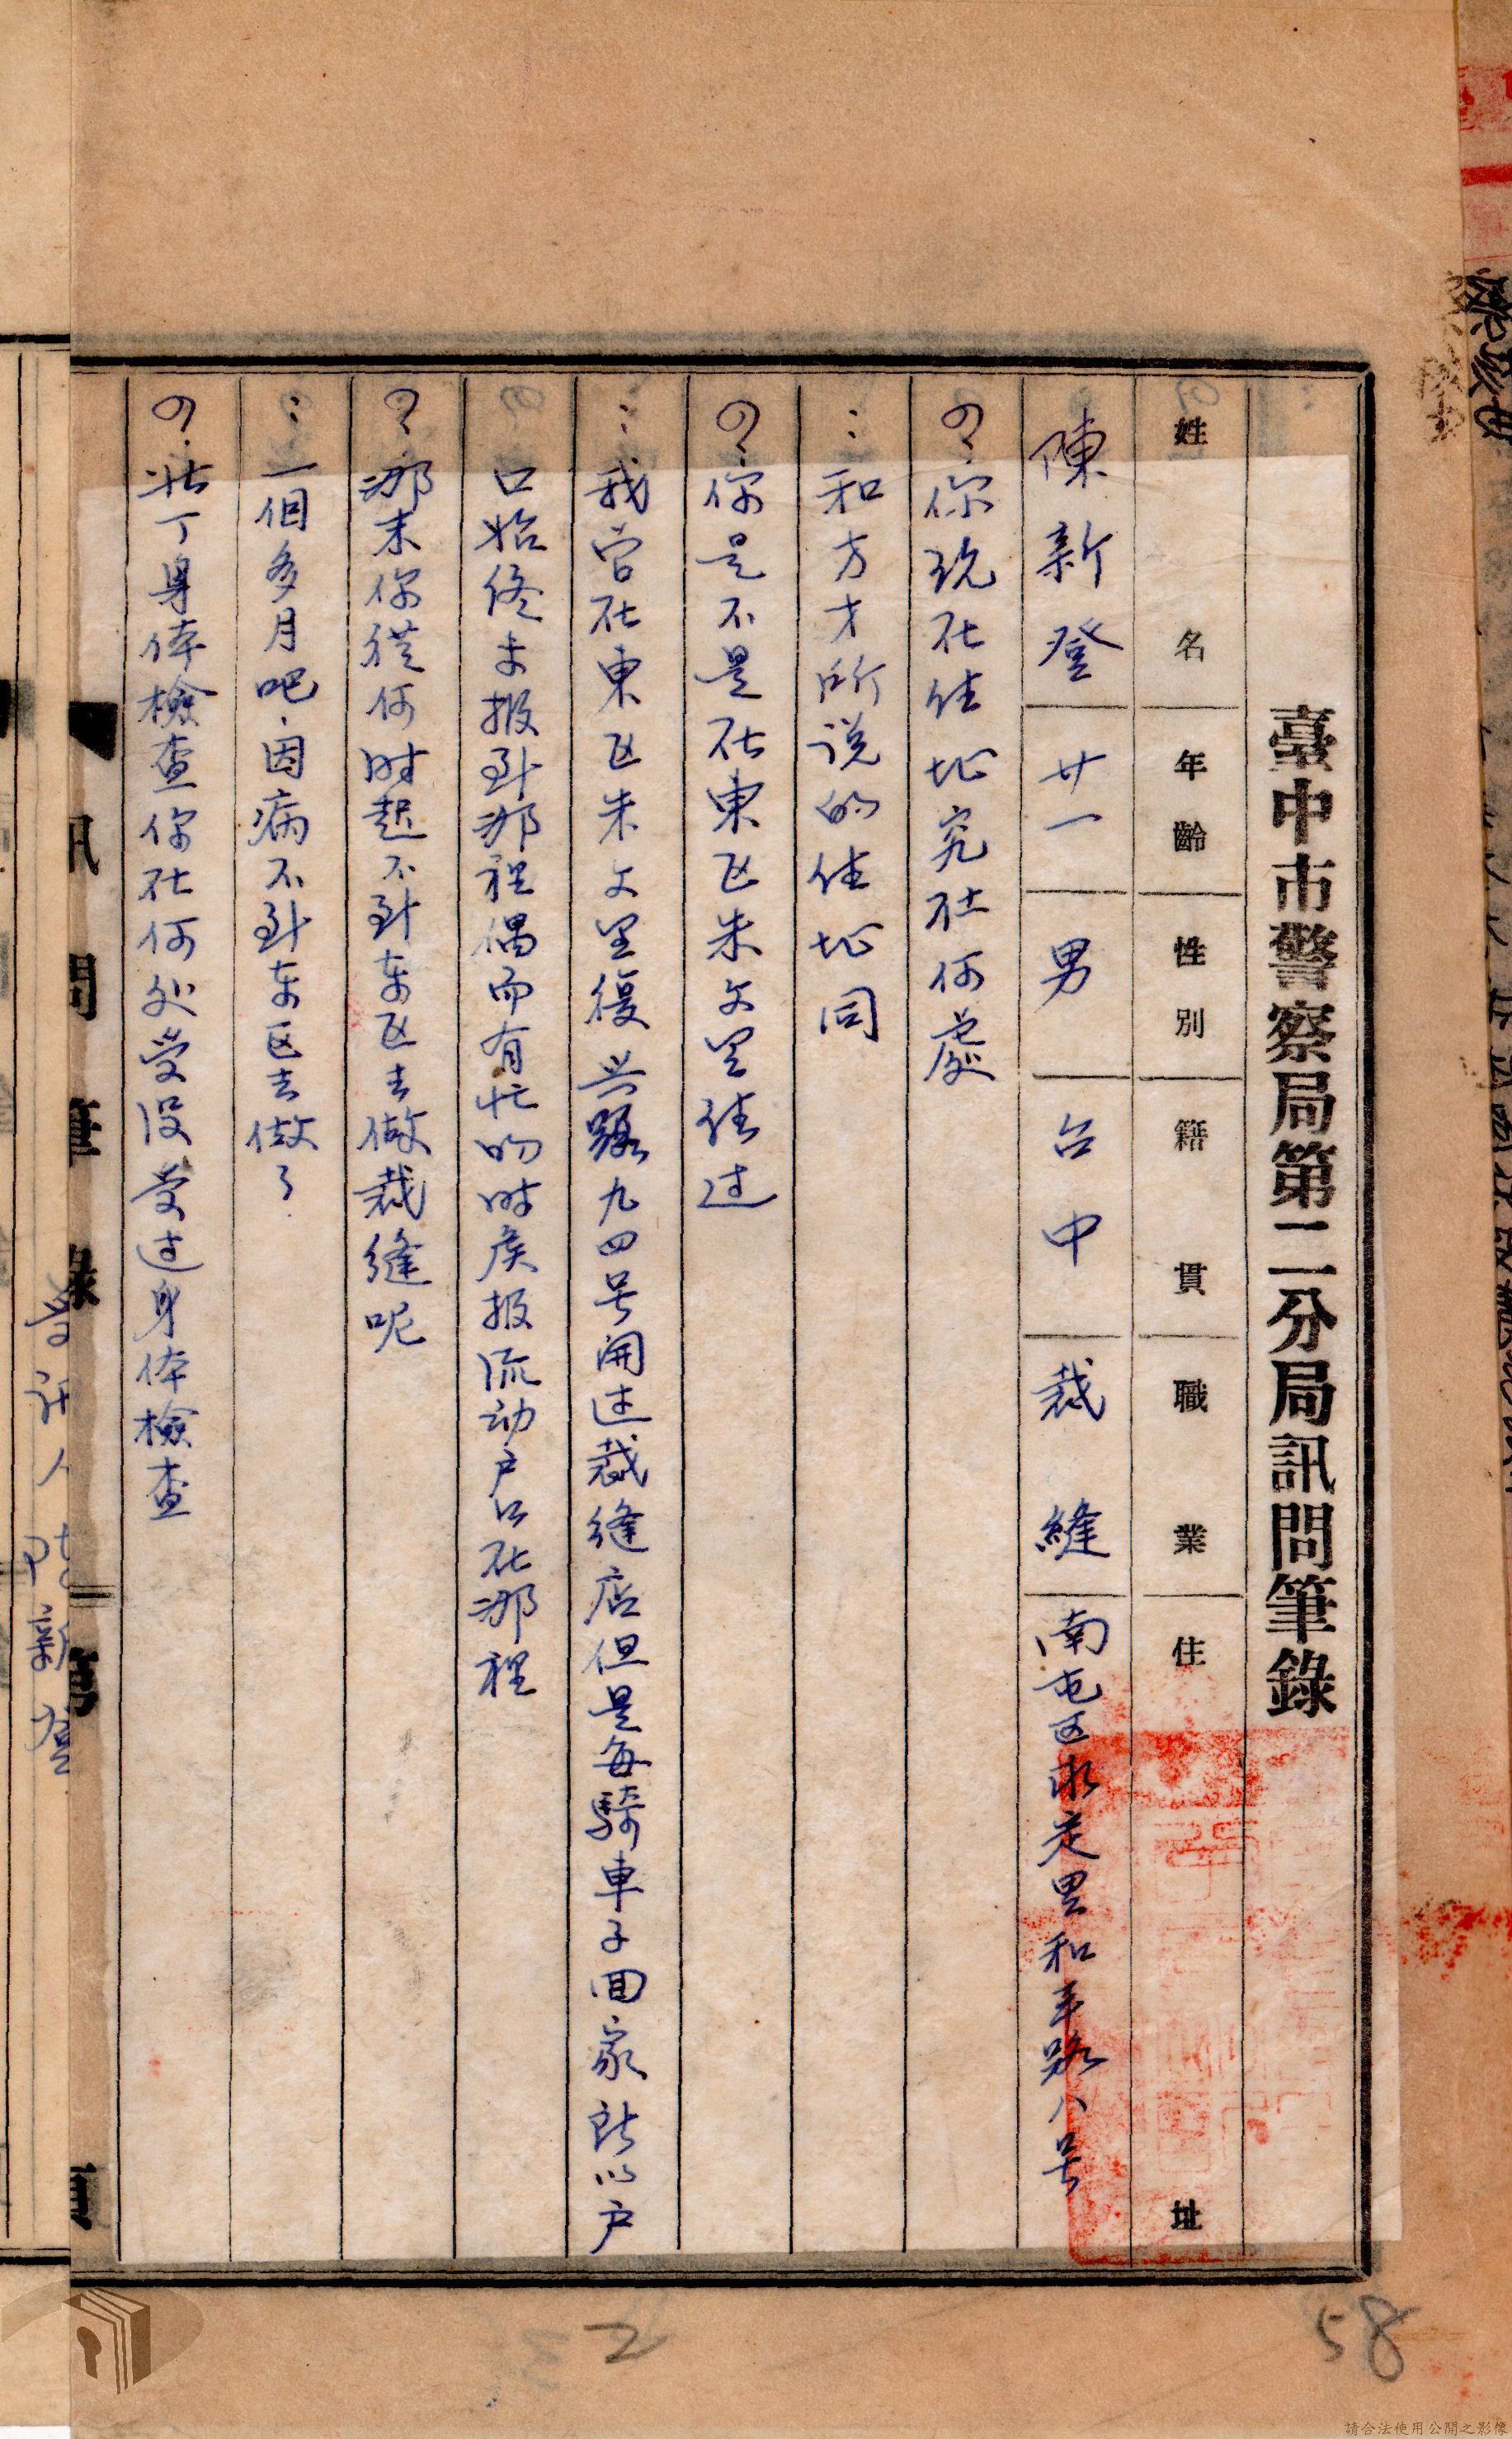 臺中市警察局第二分局訊問筆錄
姓名 年齡 性別 籍貫 職業 住址
陳新登 廿一 男 台中 裁縫 南屯区永定里和平路八号
你現在住址究在何處
和方才所说的住址同
你是不是在東区朱文里住过
我曾在東区朱文里復兴路九四号開过裁缝店但是每騎車子回家所以户
口始终未报到那裡偶而有忙的时候报流动户口在那裡
那末你從何时起不到东区去做裁缝呢
一個多月吧因病不到东区去做了
壮丁身体檢查你在何处受没受过身体檢查
訊問筆錄 頁
受訊人陳新登
58
2
請合法使用公開之影像